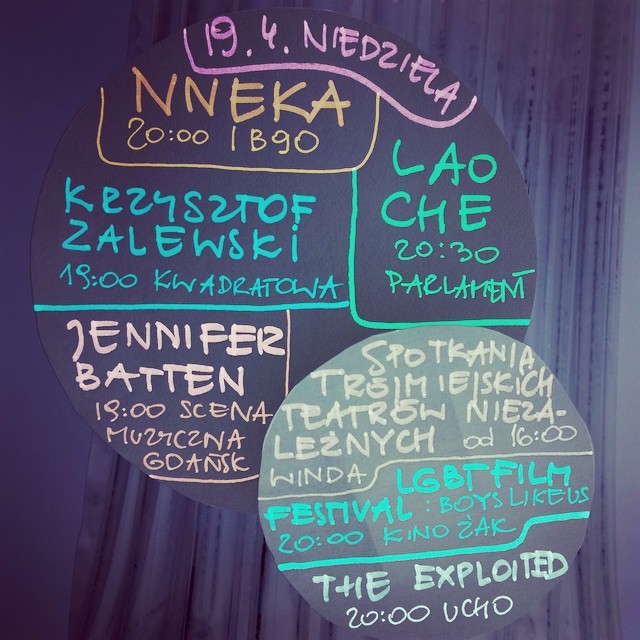 19.4. NIEDZIELA
NNEKA
20:00 IB90
LAO
CHE
20:30
PARLAMENT
KRZYSZTOF
ZALEWSKI
19:00 KWADRATOWA
JENNIFER
BATTEN
19:00 SCENA
MUZYCZNA
GDAŃSK
SPOTKANIA
TRÓJMIEJSKICH
TEATRÓW NIEZA-
LEŻNYCH od 16:00
WINDA
LGBT FILM
FESTIVAL: BOYS LIKE US
20:00 KINO ŻAK
THE EXPLOITED
20:00 UCHO